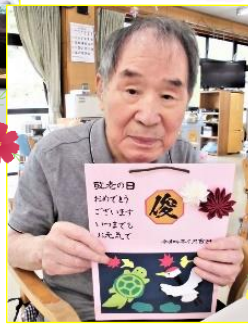 敬老の日
おめでとう
ございます
いつまでも
お元気で
俊